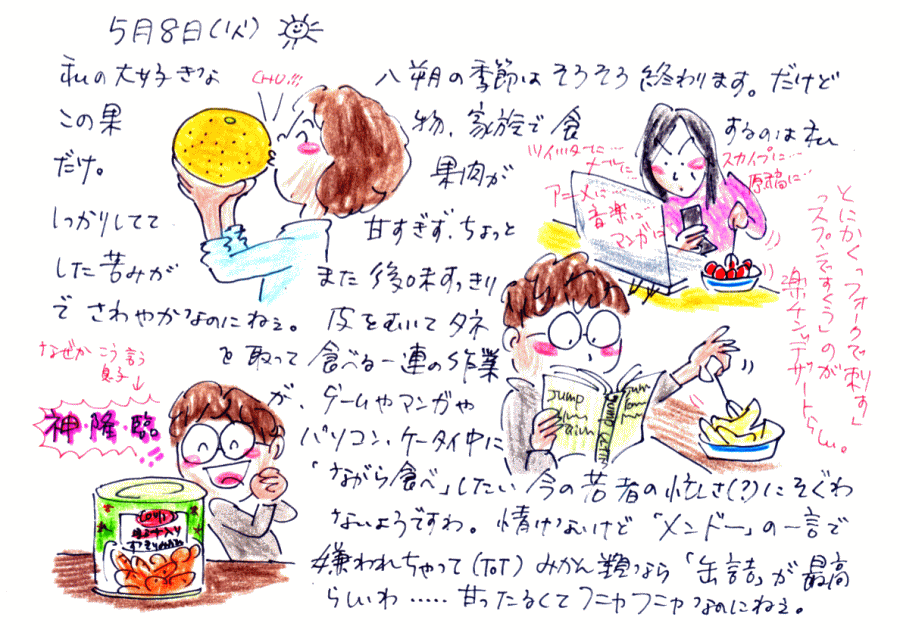 5月8日(火)
私の大好きな 八朔の季節はそろそろ終わります。だけど
この果物、家族で食するのは私
だけ。果肉が
しっかりしてて甘すぎず、ちょっと
した苦みがまた後味すっきり
でさわやかなのにねぇ。皮をむいてタネ
を取って食べる一連の作業
が、ゲームやマンガや
パソコン、ケータイ中に
「ながら食べ」したい今の若者の忙しさ(?)にそぐわ
ないようですわ。情けないけど「メンドー」の一言で
嫌われちゃって(ToT)みかん類なら「缶詰」が最高
らしいわ……甘ったるくてフニャフニャなのにねぇ。
CHU!!!
ツイッターに…
メールに
アニメに…
音楽に…
マンガに
スカイプに…
原稿に…
とにかく「フォークで刺す」
「スプーンですくう」のが
楽チンデザートらしい。
JUMP
JUMP
なぜかこう言う
息子↓
神・降・臨